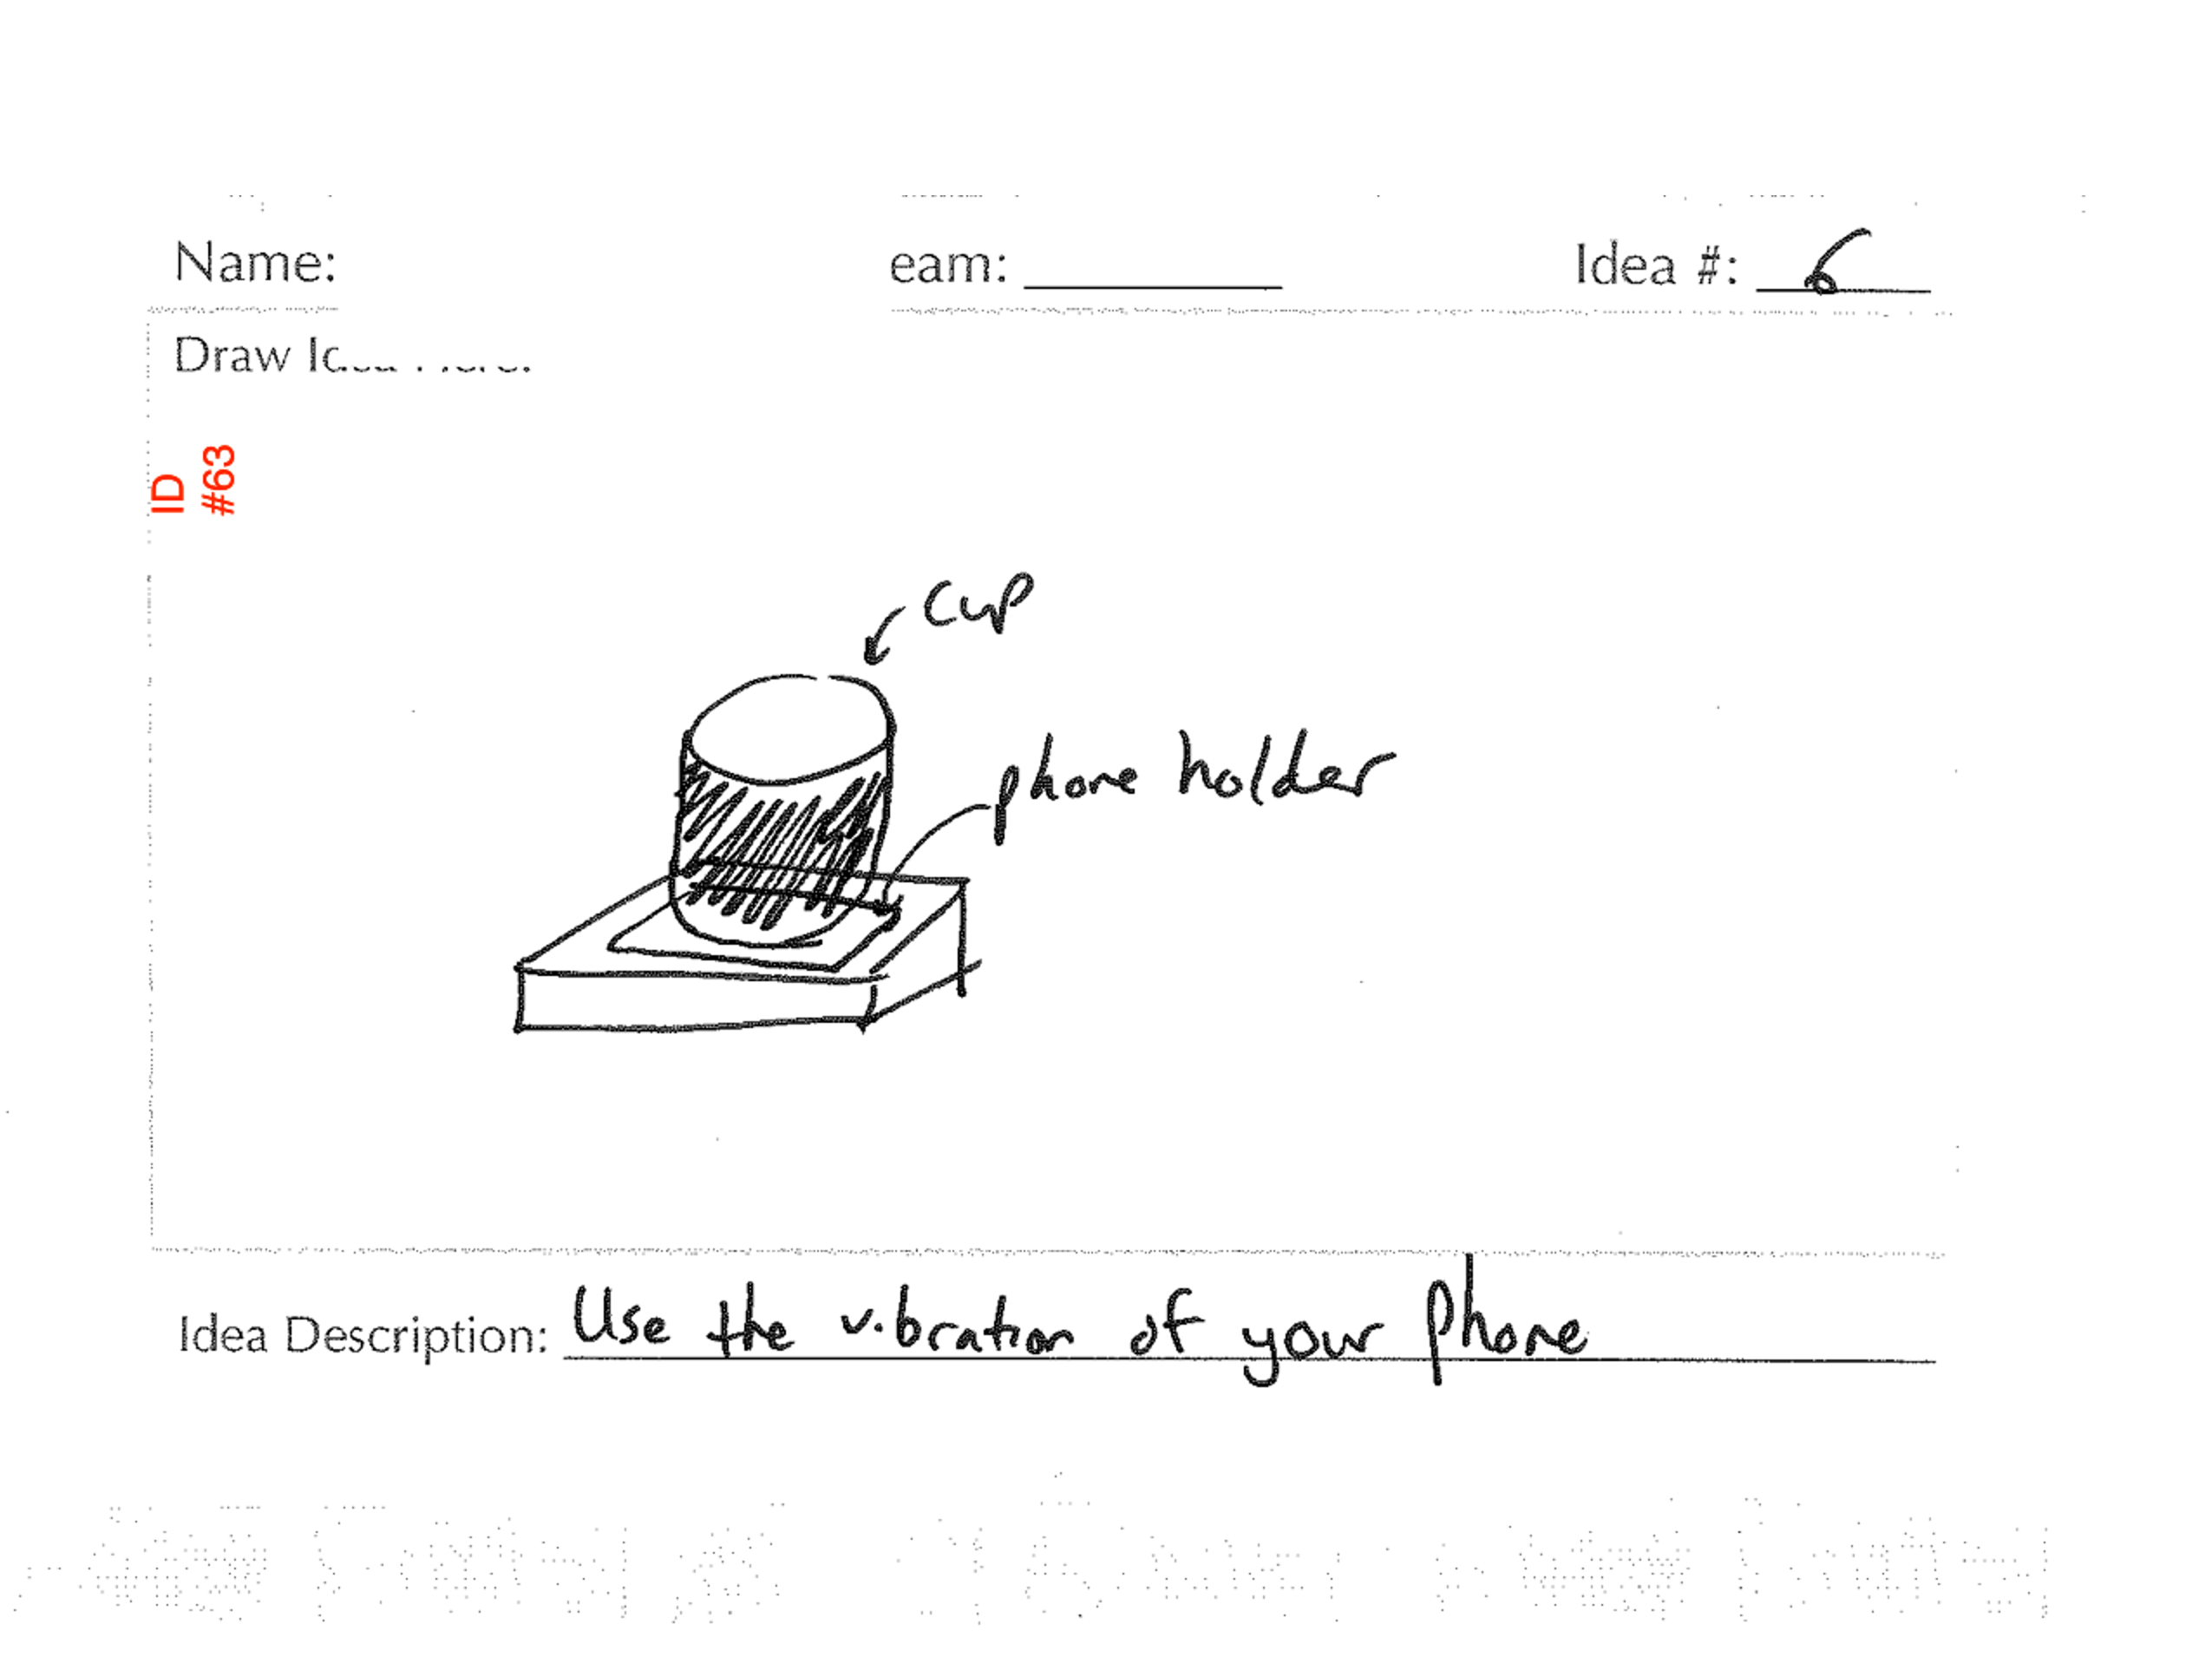 Name:
eam:
Idea #: 6
Draw
ID
#63
cup
phone holder
Idea Description: Use the vibration of your phone